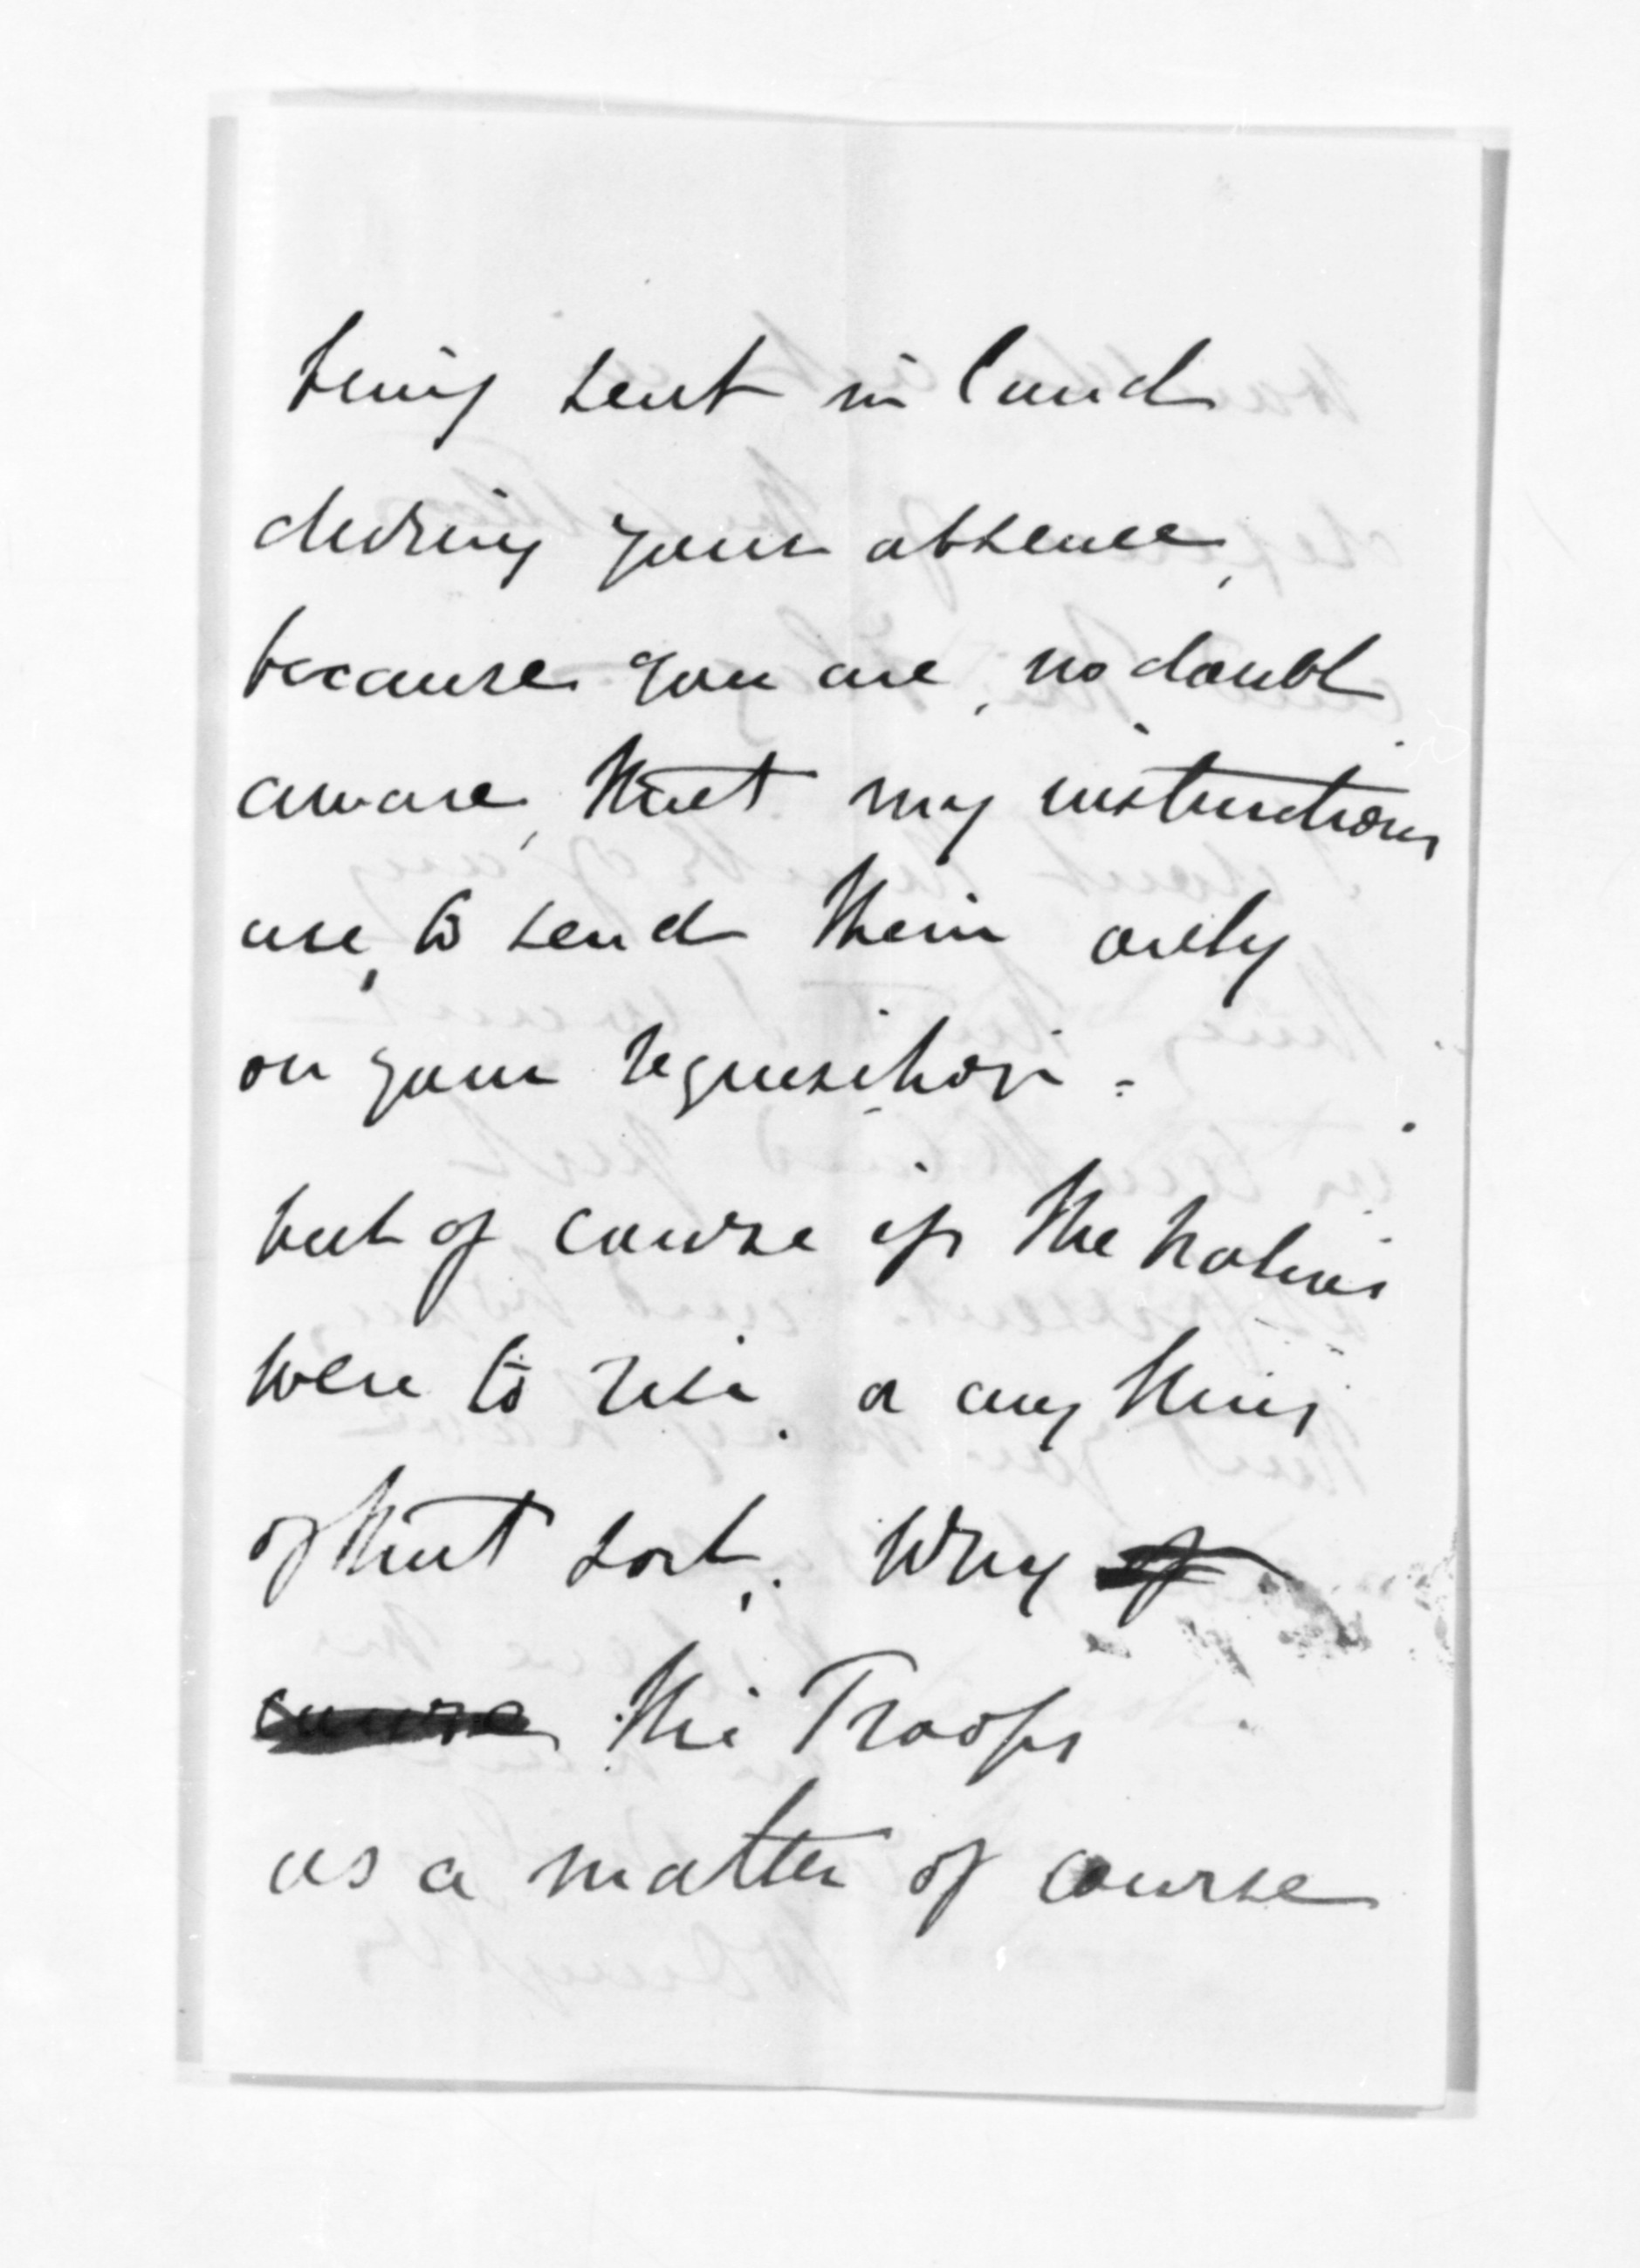 being sent in land
during your absence,
because you are, no doubt
aware, that my instructions
are, to send them only
on your requisition =
but of course if the natives
were to rise, or any thing
of that sort, why of
course the Troops
as a matter of course